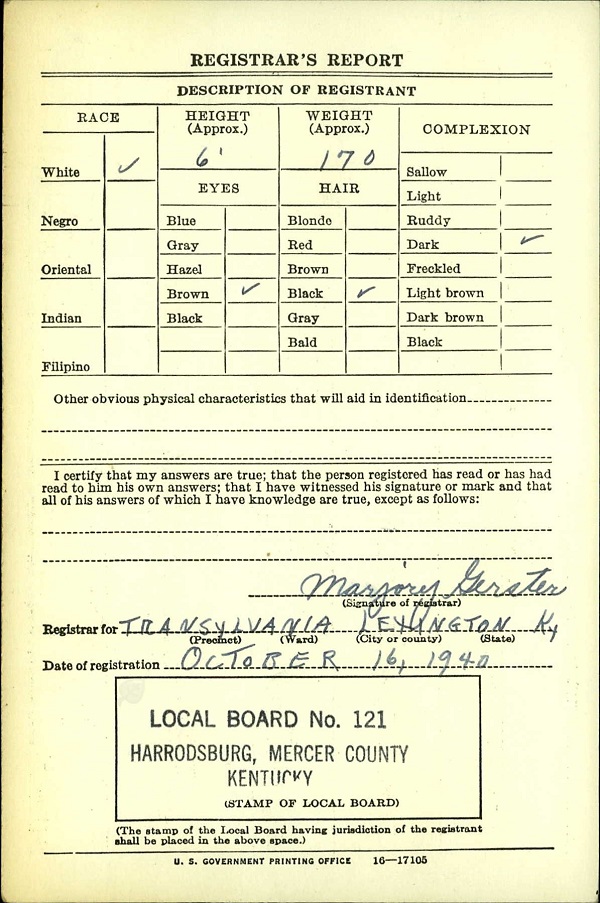 REGISTRAR'S REPORT
DESCRIPTION OF REGISTRANT
RACE
HEIGHT
(Approx.)
WEIGHT
(Approx.)
COMPLEXION
White ✓
6'
170
Sallow
EYES
HAIR
Light
Negro
Blue
Blonde
Ruddy
Gray
Red
Dark ✓
Oriental
Hazel
Brown
Freckled
Brown ✓
Black ✓
Light brown
Indian
Black
Gray
Dark brown
Bald
Black
Filipino
Other obvious physical characteristics that will aid in identification
I certify that my answers are true; that the person registered has read or has had
read to him his own answers; that I have witnessed his signature or mark and that
all of his answers of which I have knowledge are true, except as follows:
Marjory Gerster
(Signature of registrar)
Registrar for TRANSYLVANIA LEXINGTON Ky
(Precinct) (Ward) (City or county) (State)
Date of registration OCTOBER 16, 1940
LOCAL BOARD No. 121
HARRODSBURG, MERCER COUNTY
KENTUCKY
(STAMP OF LOCAL BOARD)
(The stamp of the Local Board having jurisdiction of the registrant
shall be placed in the above space.)
U. S. GOVERNMENT PRINTING OFFICE 16—17105